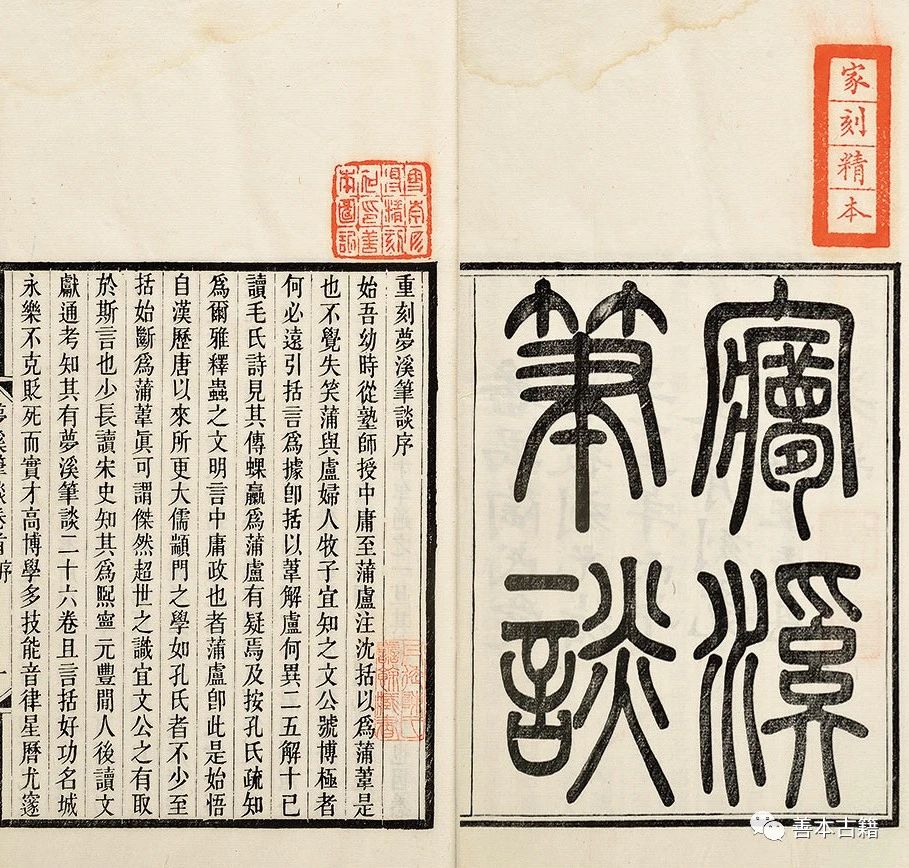 家刻精本
夢溪
筆談
重刻夢溪筆談序
始吾幼時從塾師授中庸至蒲盧注沈括以爲蒲葦是
也不覺失笑蒲與盧婦人牧子宜知之文公號博極者
何必遠引括言爲據卽括以葦解盧何異二五解十已
讀毛氏詩見其傳蜾蠃爲蒲盧有疑焉及按孔氏疏知
爲爾雅釋蟲之文明言中庸政也者蒲盧卽此是始悟
自漢歷唐以來所更大儒顓門之學如孔氏者不少至
括始斷爲蒲葦眞可謂傑然超世之識宜文公之有取
於斯言也少長讀宋史知其爲熙寧元豐閒人後讀文
獻通考知其有夢溪筆談二十六卷且言括好功名城
永樂不克貶死而實才高博學多技能音律星曆尤邃
夢溪筆談卷首 序
善本古籍